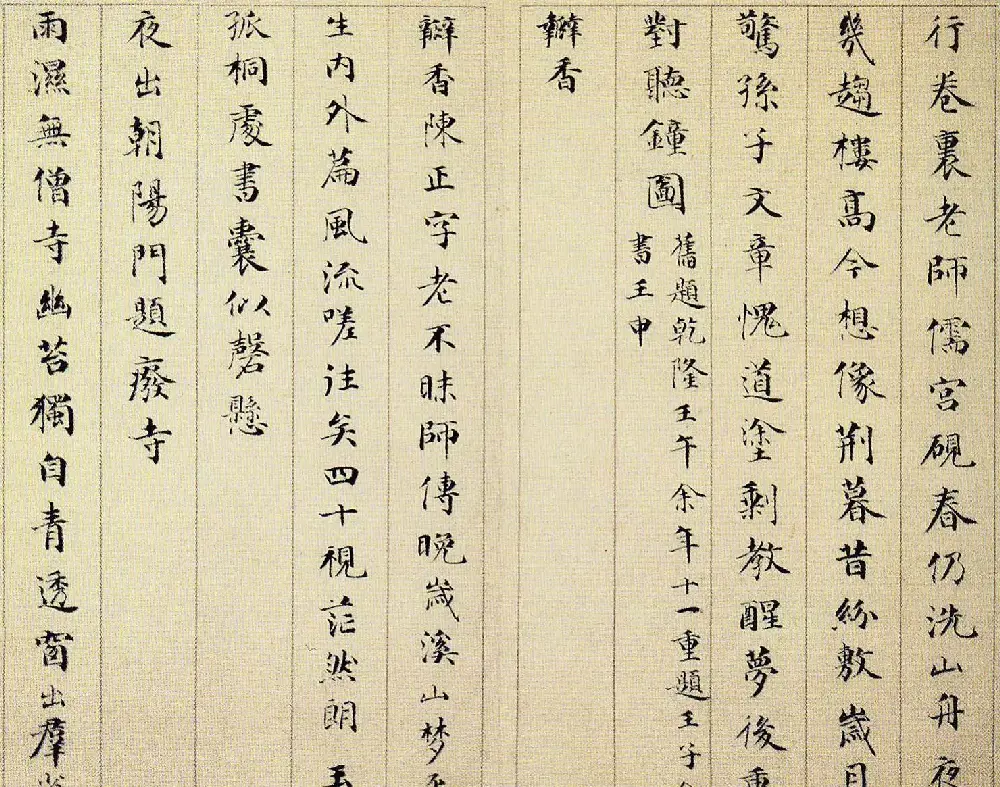 行卷裏老師儒宫硯春仍洗山舟夜
幾趨樓高今想像荆暮昔紛敷歲月
驚孫子文章愧道塗剩教醒夢後重
對聽鐘圖
舊題乾隆壬午余年十一重題壬子
書壬申
瓣香
瓣香陳正字老不昧師傳晚歲溪山梦
生内外篇風流嗟往矣四十視茫然朗
孤桐處書囊似磬懸
夜出朝陽門題廢寺
雨濕無僧寺幽苔獨自青透窗出羣